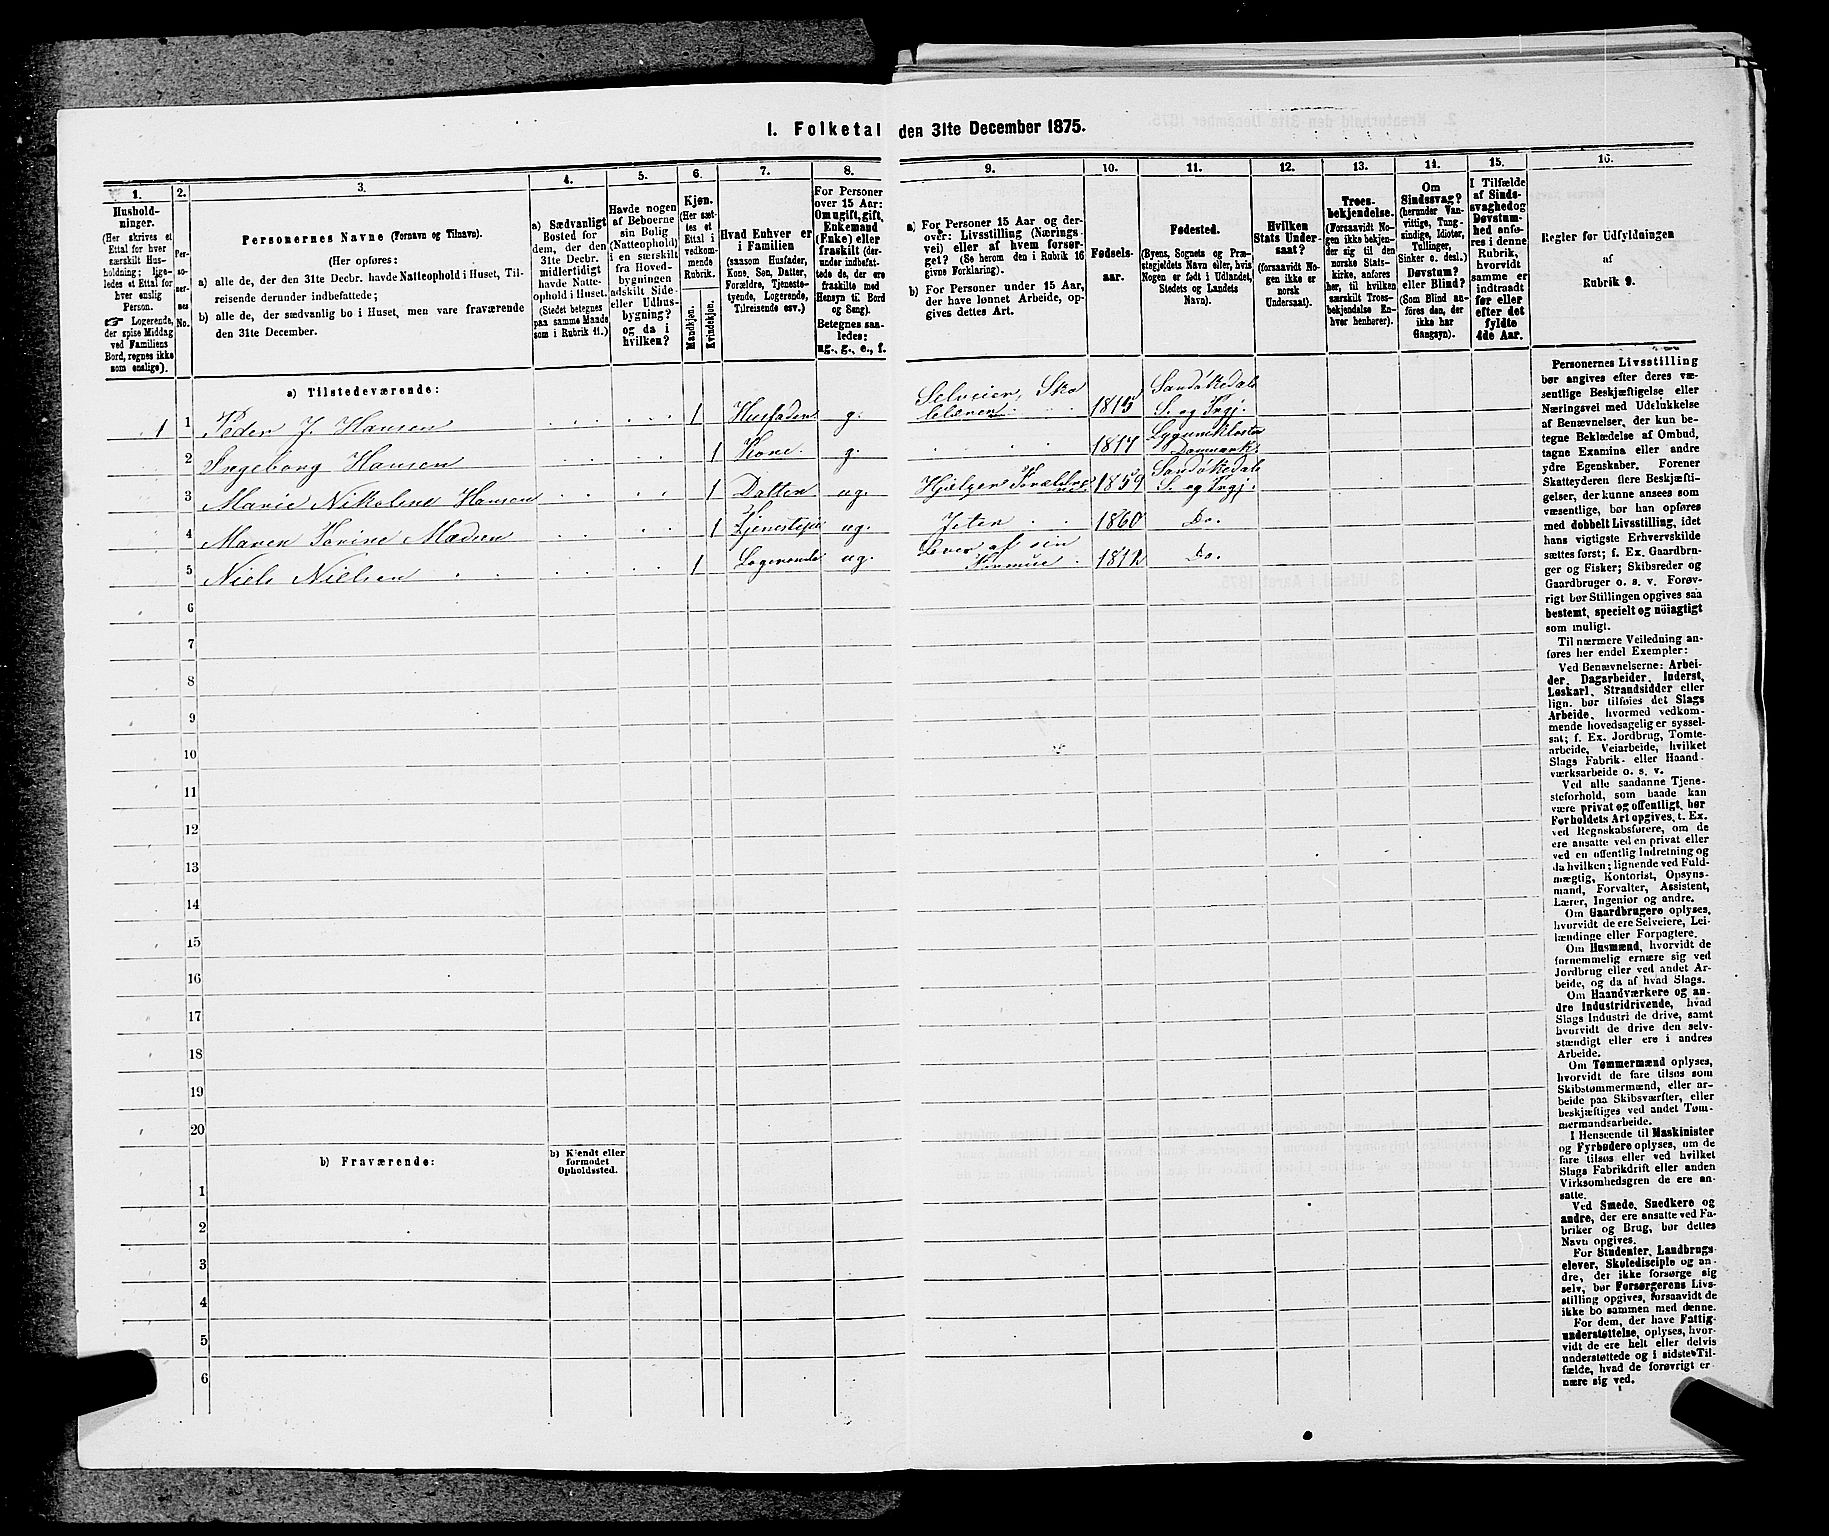 1. Folketal den 31te December 1875.
1.
Hushold-
ninger.
(Her skrives et
Ettal for hver
særskilt Hus-
holdning; lige-
ledes et Ettal for
hver enslig
Person.
☞ Logerende,
der spise Middag
ved Familiens
Bord, regnes ikke
som enslige).
2.
Per-
so-
ner-
nes
No.
3.
Personernes Navne (Fornavn og Tilnavn).
(Her opføres:
a) alle de, der den 31te Decbr. havde Natteophold i Huset, Til-
reisende derunder indbefattede;
b) alle de, der sædvanlig bo i Huset, men vare fraværende
den 31te December.
4.
a) Sædvanligt
Bosted for
dem, der den
31te Decbr.
midlertidigt
havde Natte-
ophold i Huset.
(Stedet betegnes
paa samme Maade
som i Rubrik 11.)
5.
Havde nogen
af Beboerne
sin Bolig
(Natteophold)
i en særskilt
fra Hoved-
bygningen
adskilt Side-
eller Udhus-
bygning?
og da i
hvilken?
6.
Kjøn.
(Her sæt-
tes et
Ettal i
vedkom-
mende
Rubrik.
Mandkjøn.
Kvindekjøn.
7.
Hvad Enhver er
i Familien
(saasom Husfader,
Kone, Søn, Datter,
Forældre, Tjeneste-
tyende, Logerende,
Tilreisende osv.)
8.
For Personer
over 15 Aar:
Om ugift, gift,
Enkemand
(Enke) eller
fraskilt (der-
under indbefat-
tede de, der ere
fraskilte med
Hensyn til Bord
og Seng).
Betegnes saa-
ledes:
ug., g., e., f.
9.
a) For Personer 15 Aar og der-
over: Livsstilling (Nærings-
vei) eller af hvem forsør-
get? (Se herom den i Rubrik 16
givne Forklaring).
b) For Personer under 15 Aar,
der have lønnet Arbeide, op-
gives dettes Art.
10.
Fødsels-
aar.
11.
Fødested.
(Byens, Sognets og Præ-
stegjeldets Navn eller, hvis
Nogen er født i Udlandet,
Stedets og Landets
Navn).
12.
Hvilken
Stats Under-
saat?
(forsaavidt No-
gen ikke er
norsk
Undersaat).
13.
Troes-
bekjendelse.
(Forsaavidt No-
gen ikke bekjen-
der sig til den
norske Stats-
kirke, anføres
her, til hvilken
særskilt Troes-
bekjendelse En-
hver henhører).
14.
Om
Sindssvag?
(herunder Van-
vittige, Tung-
sindige, Idioter,
Tullinger,
Sinker o. desl.)
Døvstum?
eller Blind?
(Som Blind an-
føres den, der
ikke har
Gangsyn).
15.
I Tilfælde
af Sinds-
svaghed og
Døvstum-
hed anfø-
res i denne
Rubrik,
hvorvidt
samme er
indtraadt
før eller
efter det
fyldte
4de Aar.
16.
Regler for Udfyldningen
af
Rubrik 9.
a) Tilstedeværende:
1 1 Peder J. Hansen 1 Husfader g. Selveier, Sko 1815 Sandøkedals
S. og Prgj.
2 Ingeborg Hansen 1 Kone g. 1817 Lygumkloster
Danmark
3 Marie Nikoline Hansen 1 Datter ug. Hjelper Forældrene 1859 Sandøkedals
S. og Prgj.
4 Maren Karine Madsen 1 Tjenestepie ug. Jeter 1860 Do.
5 Niels Nielsen 1 Logerende ug. Lever af sin
Formue 1812 Do.
6
7
8
9
10
11
12
13
14
15
16
17
18
19
20
b) Fraværende:
b) Kjendt eller
formodet
Opholdssted.
1
2
3
4
5
6
Personernes Livsstilling
bør angives efter deres væ-
sentlige Beskjæftigelse eller
Næringsvei med Udelukkelse
af Benævnelser, der kun be-
tegne Beklædelse af Ombud,
tagne Examina eller andre
ydre Egenskaber. Forener
Skatteyderen flere Beskjæfti-
gelser, der kunne ansees som
væsentlige, bør han opføres
med dobbelt Livsstilling, idet
hans vigtigste Erhvervskilde
sættes først; f. Ex. Gaardbru-
ger og Fisker; Skibsreder og
Gaardbruger o. s. v. Forøv-
rigt bør Stillingen opgives saa
bestemt, specielt og nöiagtigt
som muligt.
Til nærmere Veiledning an-
føres her endel Exempler:
Ved Benævnelserne: Arbei-
der, Dagarbeider, Inderst,
Løskarl, Strandsidder eller
lign. bør tilføies det Slags
Arbeide, hvormed vedkom-
mende hovedsagelig er syssel-
sat; f. Ex. Jordbrug, Tomte-
arbeide, Veiarbeide, hvilket
Slags Fabrik- eller Haand-
værksarbeide o. s. v.
Ved alle saadanne Tjene-
steforhold, som baade kan
være privat og offentligt, bør
Forholdets Art opgives, t. Ex.
ved Regnskabsførere, om de
ere ansatte ved en privat eller
ved en offentlig Indretning og
da hvilken; lignende ved Fuld-
mægtig, Kontorist, Opsyns-
mand, Forvalter, Assistent,
Lærer, Ingeniør og andre.
Om Gaardbrugere oplyses,
hvorvidt de ere Selveiere, Lei-
lændinge eller Forpagtere.
Om Husmænd, hvorvidt de
fornemmelig ernære sig ved
Jordbrug eller ved andet Ar-
beide, og da af hvad Slags.
Om Haandværkere og an-
dre Industridrivende, hvad
Slags Industri de drive, samt
hvorvidt de drive den selv-
stændigt eller ere i andres
Arbeide.
Om Tømmermænd oplyses,
hvorvidt de fare tilsøs som
Skibstømmermænd, eller ar-
beide paa Skibsværfter, eller
beskjæftiges ved andet Tøm-
mermandsarbeide.
I Henseende til Maskinister
og Fyrbødere oplyses, om de
fare tilsøs eller ved hvilket
Slags Fabrikdrift eller anden
Virksomhedsgren de ere an-
satte.
Ved Smede, Snedkere og
andre, der ere ansatte ved Fa-
briker og Brug, bør dettes
Navn opgives.
For Studenter, Landbrugs-
elever, Skoledisciple og an-
dre, der ikke forsørge sig
selv, bør Forsørgerens Livs-
stilling opgives, forsaavidt de
ikke bo sammen med denne.
For dem, der have Fattig-
understøttelse, oplyses, hvor-
vidt de ere helt eller delvis
understøttede og i sidste Til-
fælde, hvad de forøvrigt er-
nære sig ved.